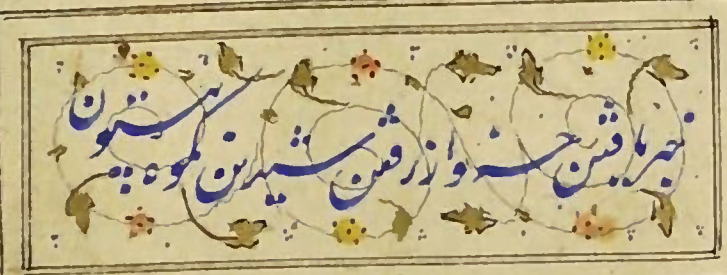 خبر یافتن خسرو از رفتن شیرین بکوه بیستون